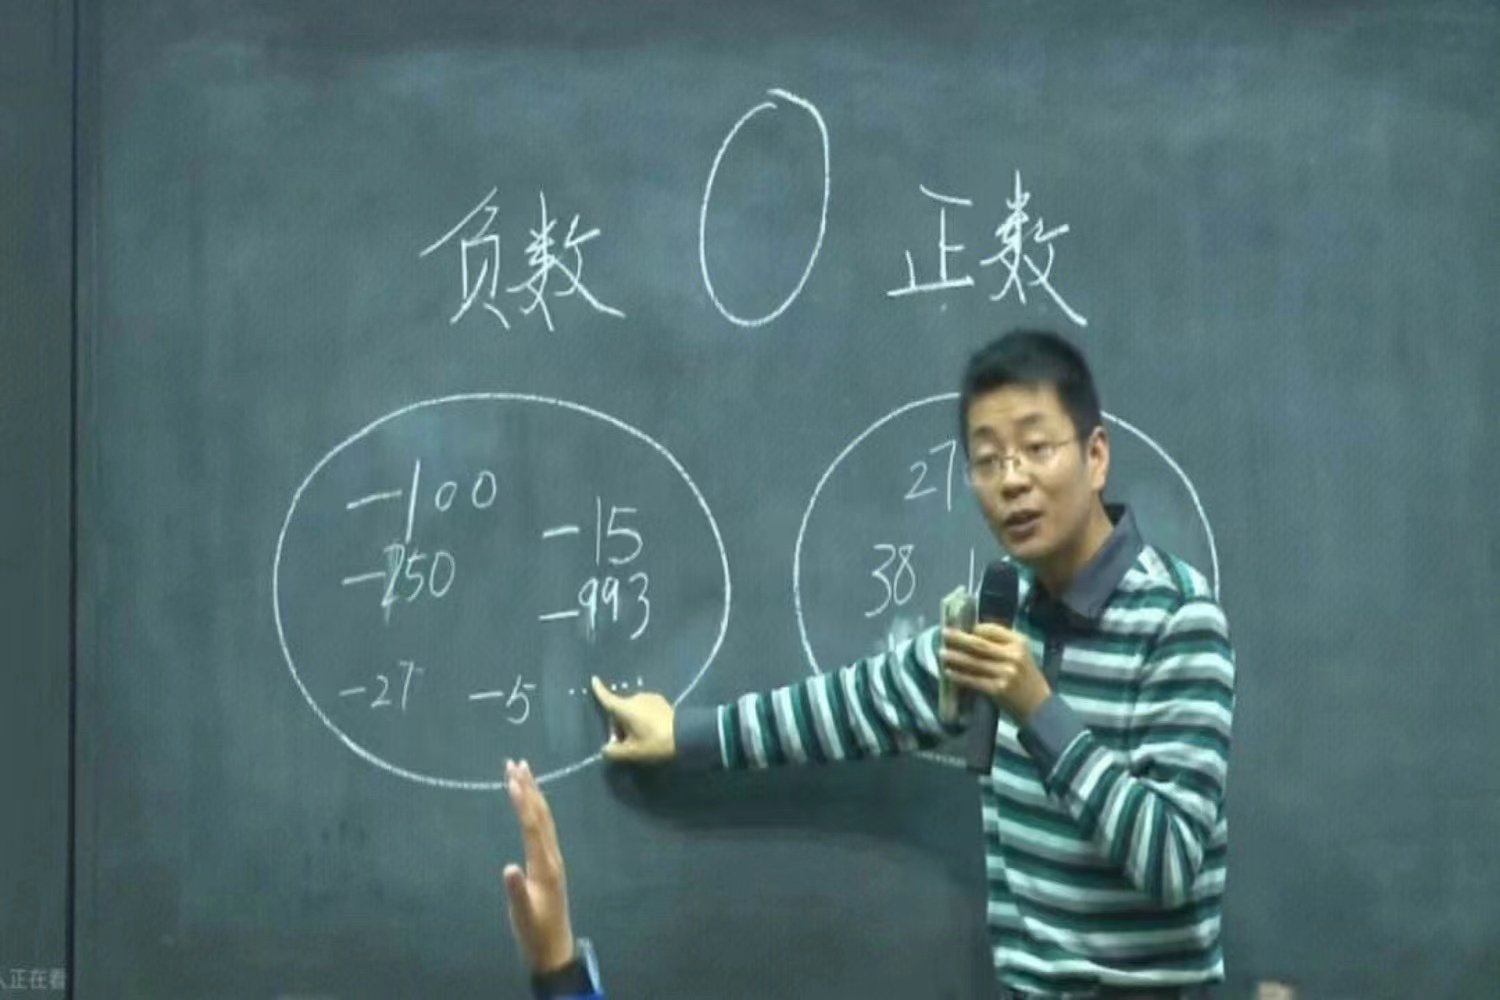 负数 0 正数
-100
-15
-250
-993
-27 -5 ······
27
38
人正在看